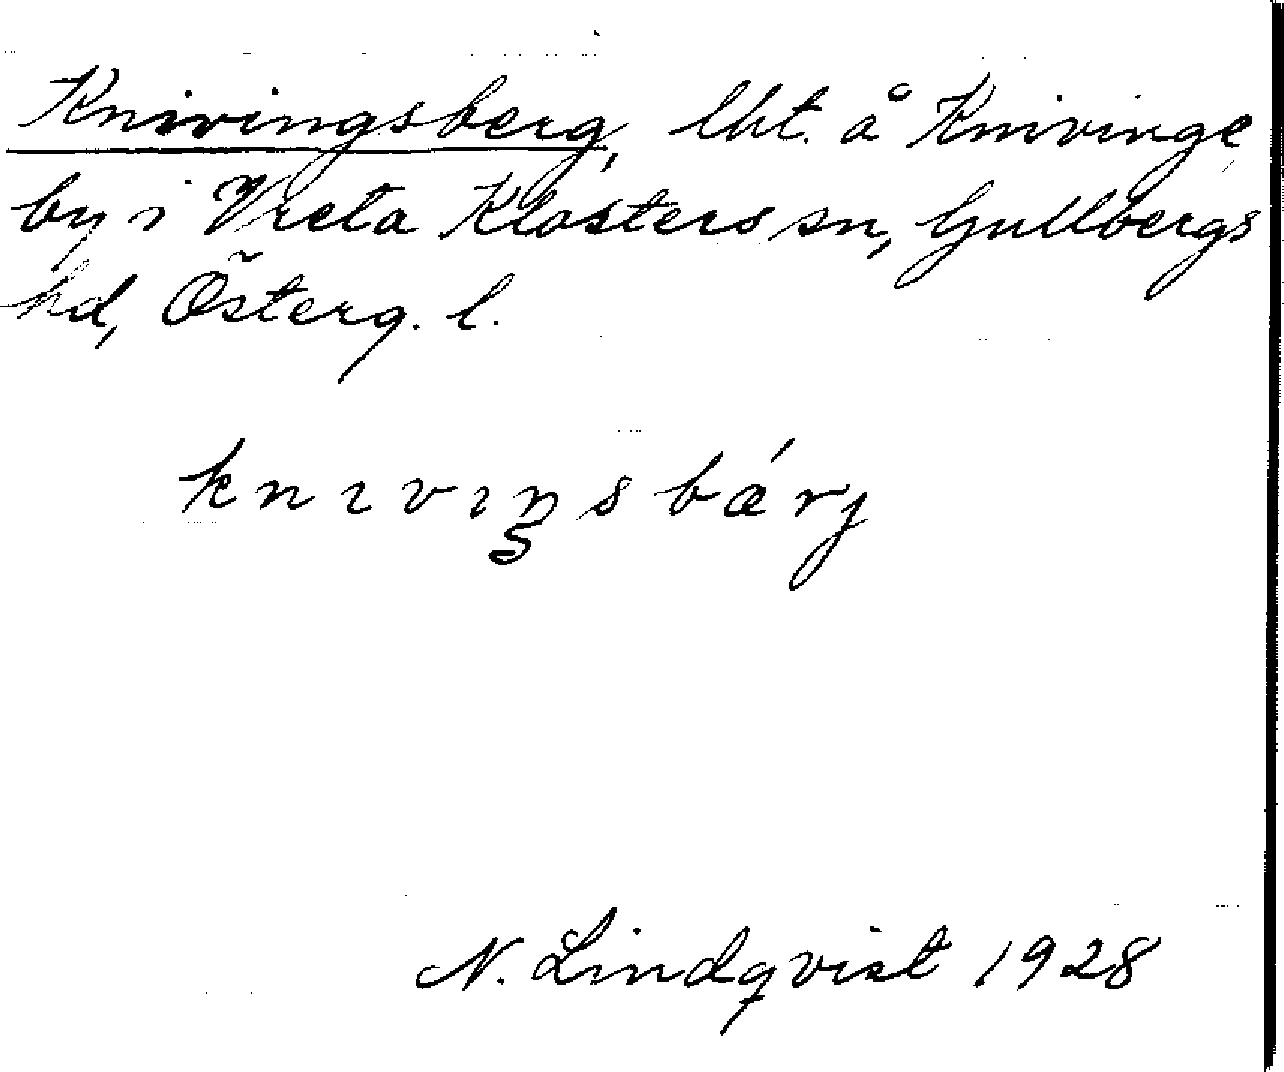 Knivingsberg, lht. å Knivinge
by i Vreta Klosters sn, Gullbergs
hd, Österg. l.
knıvıŋsbǽrj
N. Lindqvist 1928